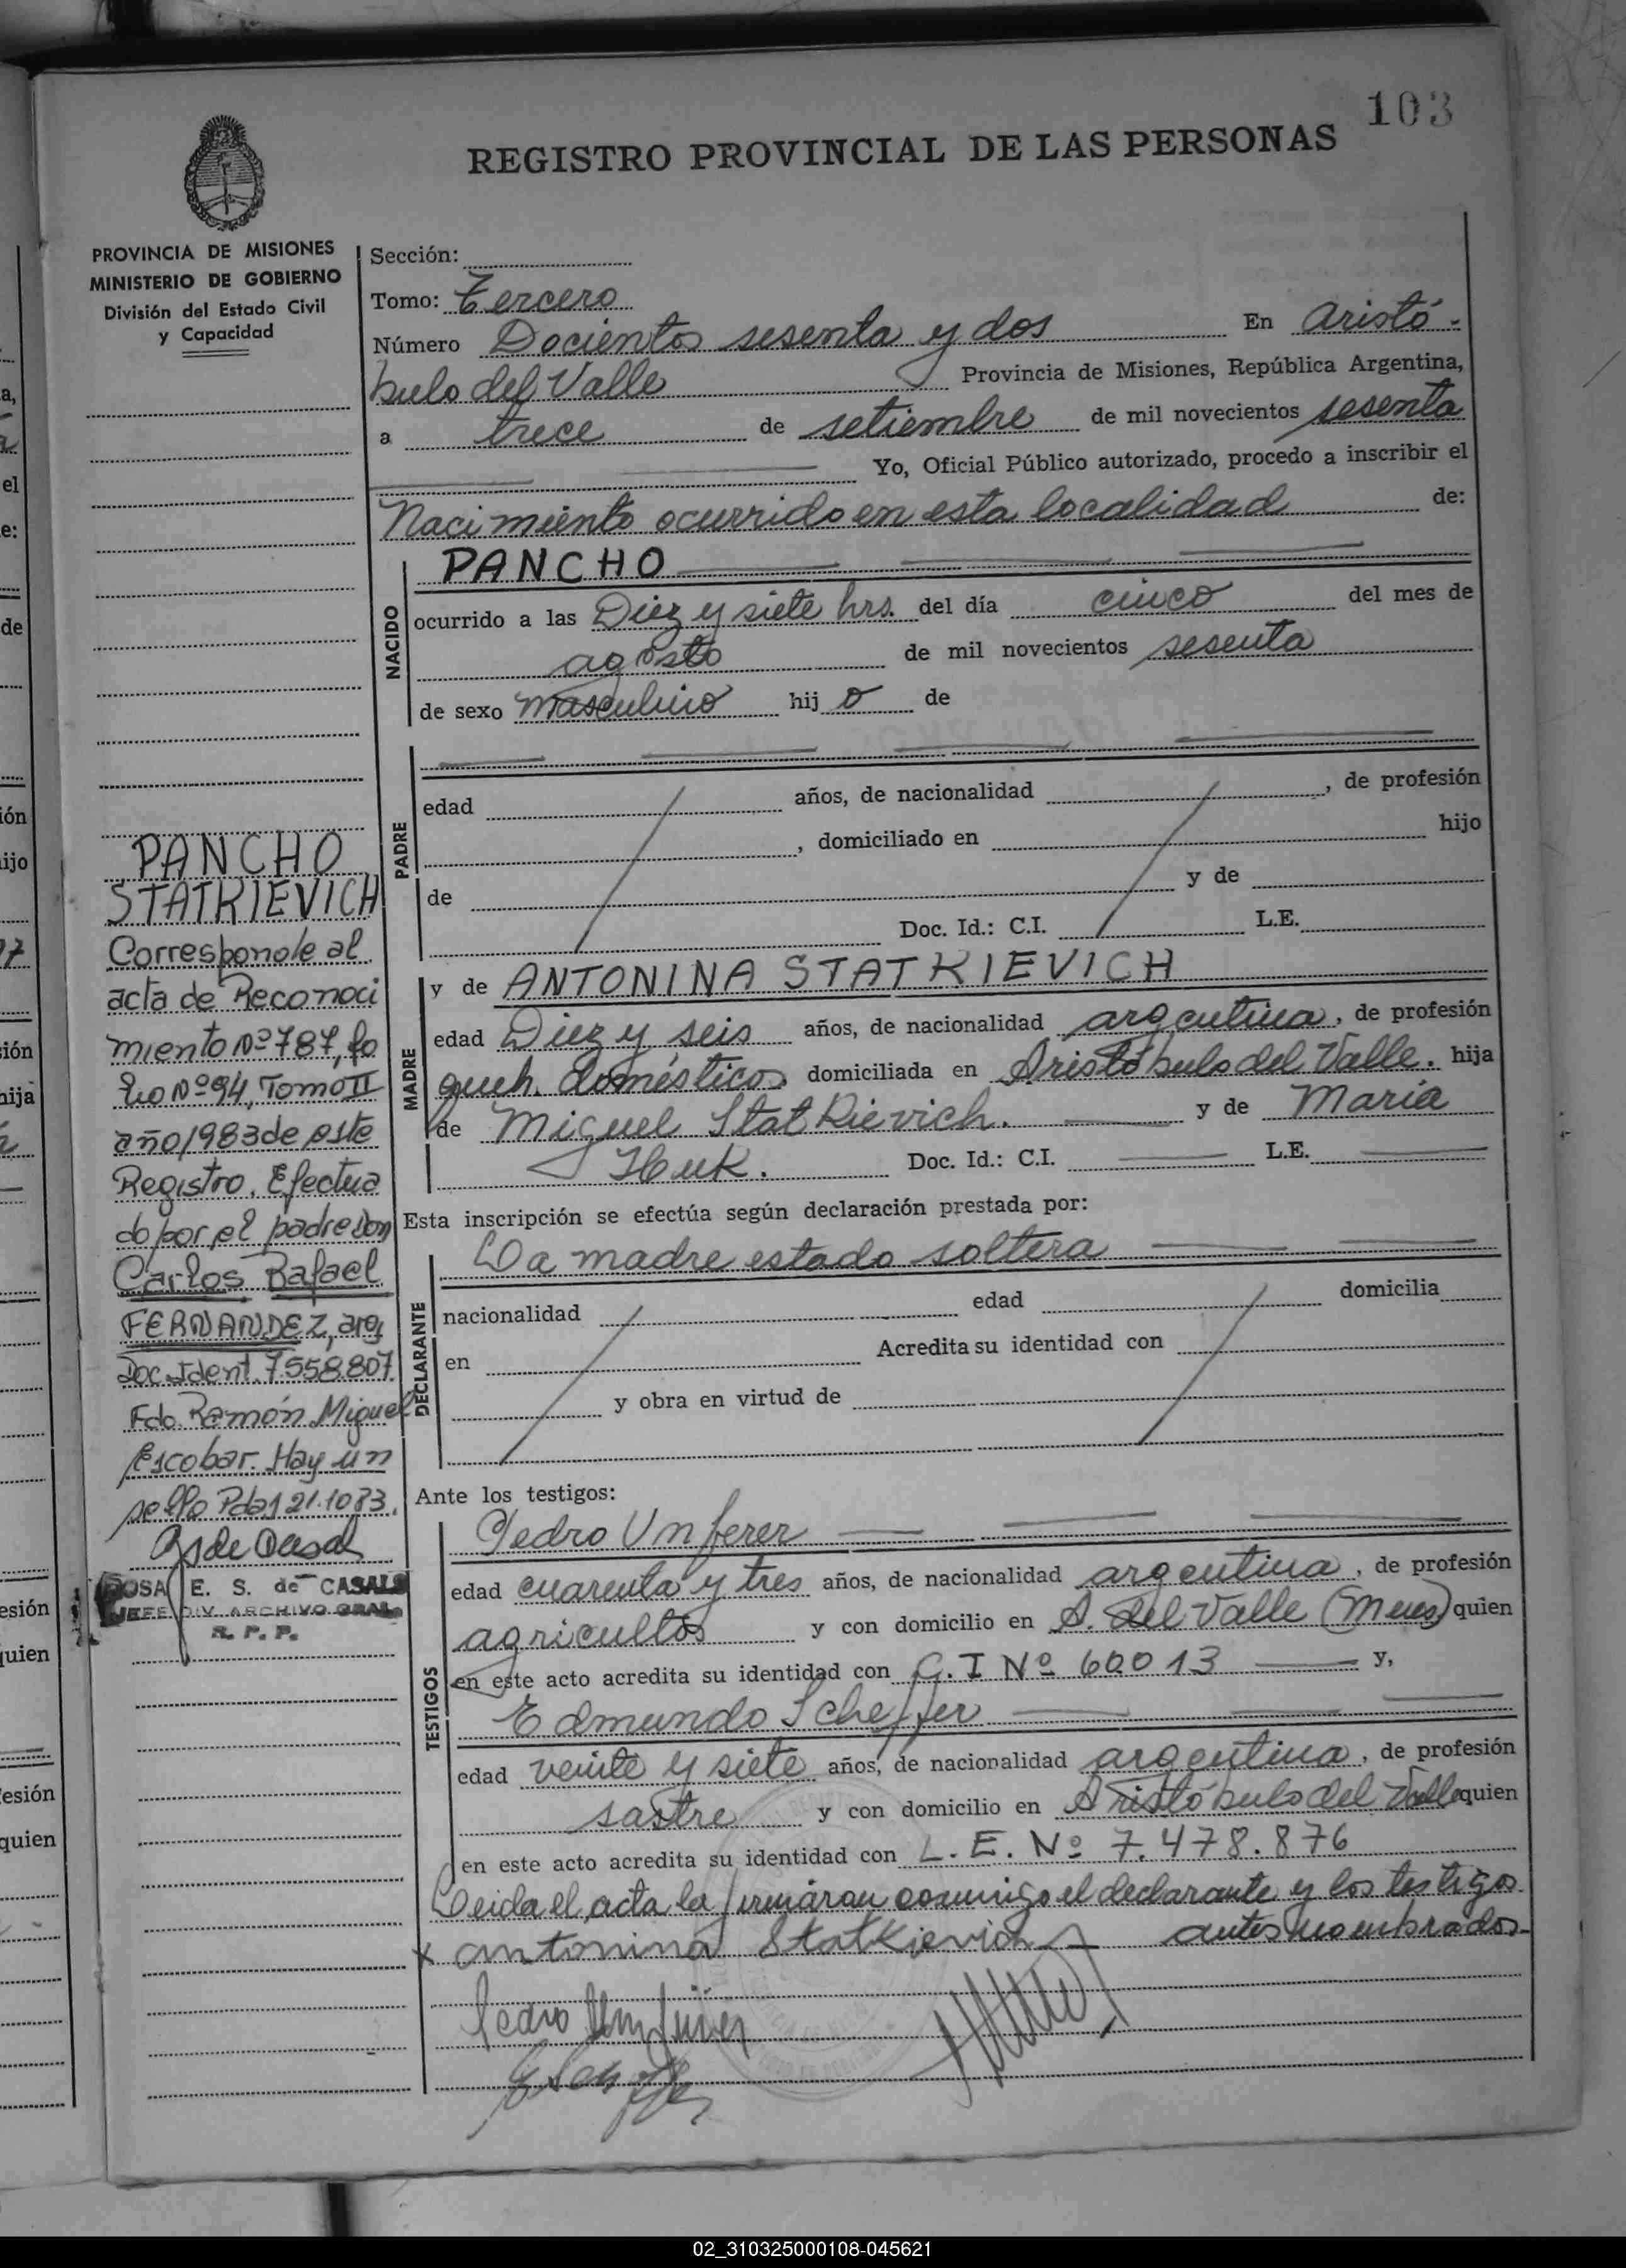 103
REGISTRO PROVINCIAL DE LAS PERSONAS
PROVINCIA DE MISIONES
MINISTERIO DE GOBIERNO
División del Estado Civil
y Capacidad
PANCHO
STATKIEVICH
Corresponde al
acta de Reconoci
miento Nº 787, fo
lio Nº 94, Tomo II
año 1983 de este
Registro. Efectua
do por el padre Don
Carlos Rafael
FERNANDEZ, arg
Doc. Ident. 7.558.807.
Fdo. Ramón Miguel
Escobar. Hay un
sello Pdas 21.10 83.
ROSA E. S. de CASALS
JEFE DIV. ARCHIVO GRAL.
R. P. P.
Sección:
Tomo: Tercero
Número Docientos sesenta y dos En Aristó-
bulo del Valle Provincia de Misiones, República Argentina,
a trece de setiembre de mil novecientos sesenta
Yo, Oficial Público autorizado, procedo a inscribir el
Nacimiento ocurrido en esta localidad de:
NACIDO
PANCHO
ocurrido a las Diez y siete hrs. del día cinco del mes de
agosto de mil novecientos sesenta
de sexo masculino hij o de
PADRE
edad años, de nacionalidad , de profesión
, domiciliado en hijo
de y de
Doc. Id.: C.I. L.E.
MADRE
y de ANTONINA STATKIEVICH
edad Diez y seis años, de nacionalidad argentina, de profesión
queh. domésticos domiciliada en Aristóbulo del Valle. hija
de Miguel Statkievich. y de María
Huk. Doc. Id.: C.I. L.E.
Esta inscripción se efectúa según declaración prestada por:
DECLARANTE
La madre estado soltera
nacionalidad edad domicilia
en Acredita su identidad con
y obra en virtud de
Ante los testigos:
TESTIGOS
Pedro Unferer
edad cuarenta y tres años, de nacionalidad argentina, de profesión
agricultor y con domicilio en A. del Valle (Mnes) quien
en este acto acredita su identidad con C.I Nº 60013 y,
Edmundo Scheffer
edad veinte y siete años, de nacionalidad argentina, de profesión
sastre y con domicilio en Aristóbulo del Valle quien
en este acto acredita su identidad con L.E. Nº 7.478.876
Leida el acta la firmáron conmigo el declarante y los testigos
antes nombrados.
x antonina Statkievich
02_310325000108-045621